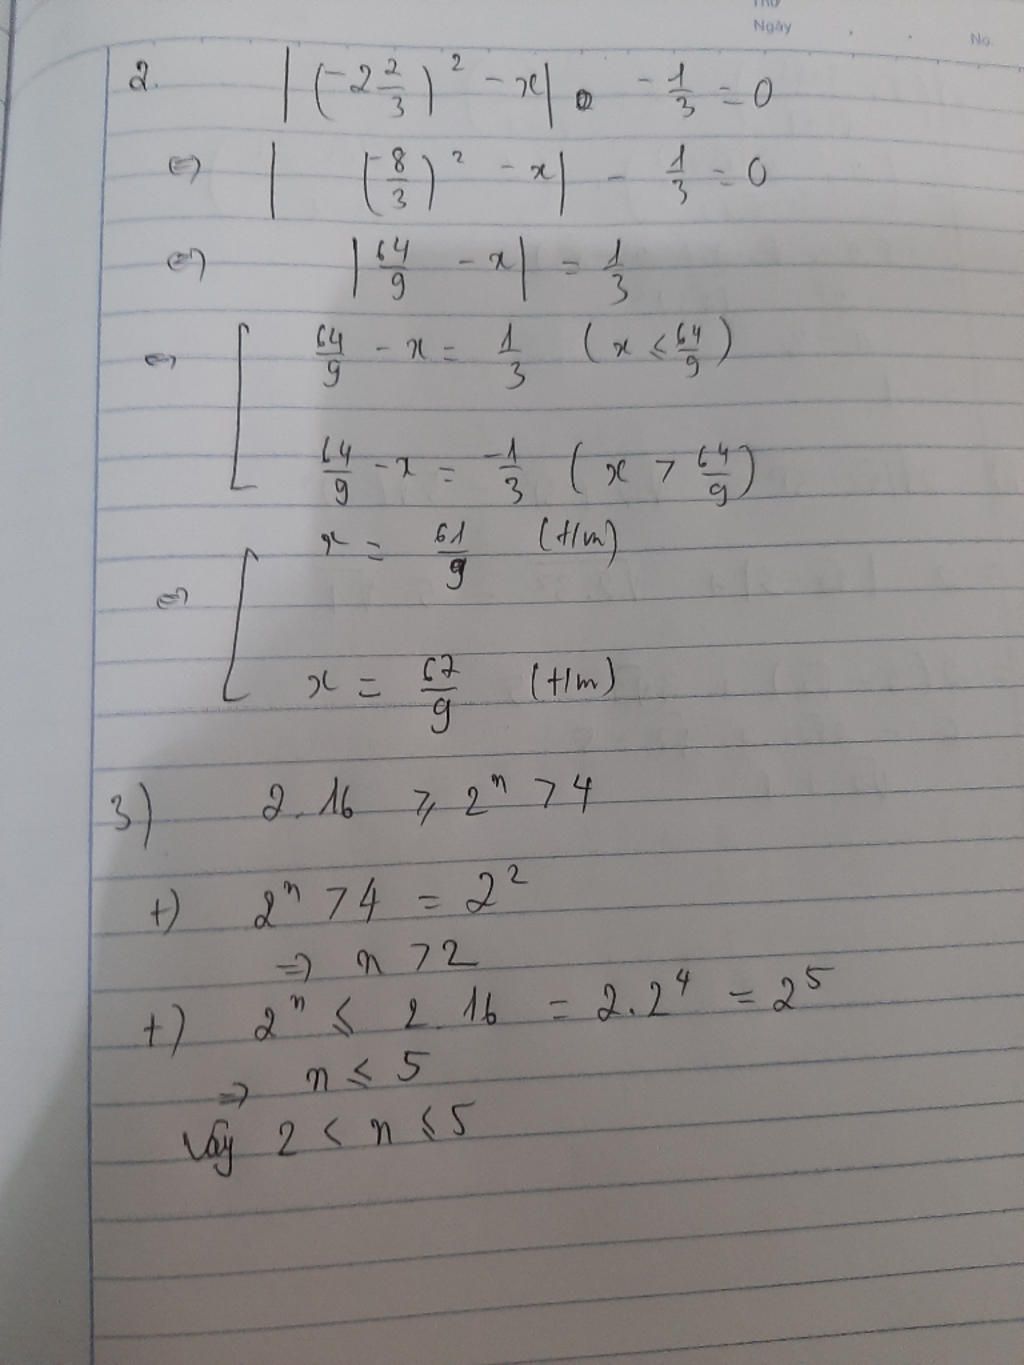 Thứ
Ngày . .
No.
2. |(-2 2/3)² - x| - 1/3 = 0
⇔ |(-8/3)² - x| - 1/3 = 0
⇔ |64/9 - x| = 1/3
⇔ [ 64/9 - x = 1/3 (x ≤ 64/9)
64/9 - x = -1/3 (x > 64/9)
⇔ [ x = 61/9 (t/m)
x = 67/9 (t/m)
3) 2.16 ≥ 2ⁿ > 4
+) 2ⁿ > 4 = 2²
⇒ n > 2
+) 2ⁿ ≤ 2.16 = 2.2⁴ = 2⁵
⇒ n ≤ 5
Vậy 2 < n ≤ 5